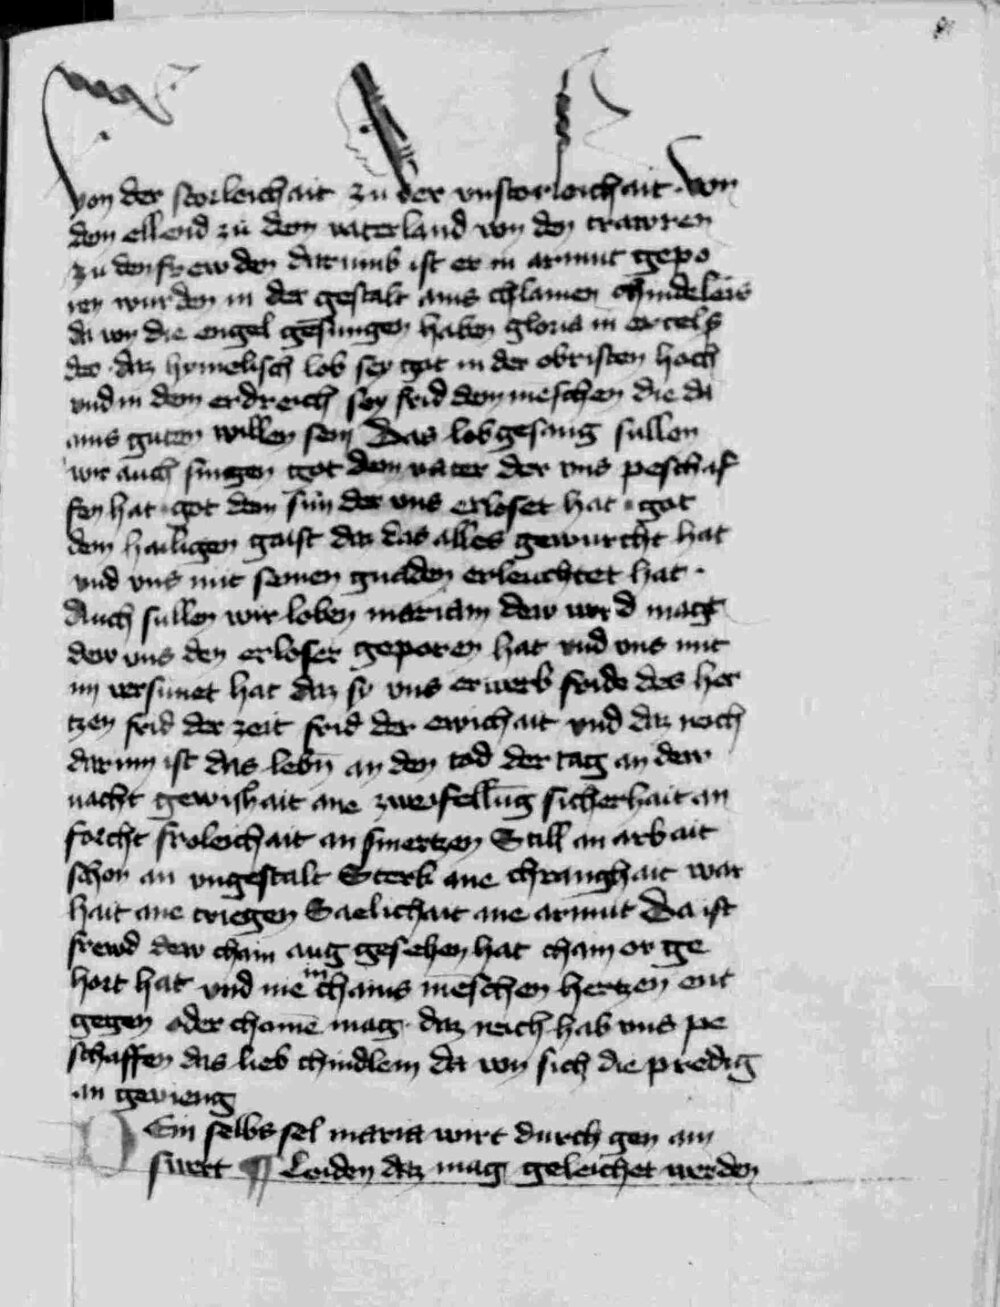 von der storleichait zu der vnstorleichait von
dem ellend zu dem vaterland von den trawren
zu den frewden darumb ist er in armut gepo
ren wurden in der gestalt ains chlainen chindeleins
da von die engel gesungen haben gloria in excels
deo · daz hymelisch lob sey got in der obristen hoch
vnd in dem erdreich sey frid dem meschen die da
ains guten willen sein Das lobgesang sullen
wir auch singen got dem vater der vns peschaf
fen hat · got dem sun der vns erloset hat · got
dem hailigen gaist der das alles gewurcht hat
vnd vns mit seinen gnaden erleuchtet hat ·
Auch sullen wir loben mariam dew werd magt
dew vns den erloser geporen hat vnd vns mit
im versunet hat daz sy vns erwerb fride des her
tzen frid der zeit frid der ewichait vnd daz reich
darinn ist das lebn an den tod der tag an dew
nacht gewishait ane zweifellung sicherhait an
forcht froleichait an smertzen Still an arbait
schon an vngestalt Sterk ane chrangkhait war
hait ane triegen Saelichait ane armut Da ist
frewd dew chain aug gesehen hat chain or ge
hort hat vnd nie in chains meschen hertzen ent
gegen oder chome mag · daz reich hab vns pe
schaffen das lieb chindlein da von sich die predig
an gevieng
Dein selbs sel maria wirt durch gen ain
swert ¶ Leiden daz mag geleichet werden